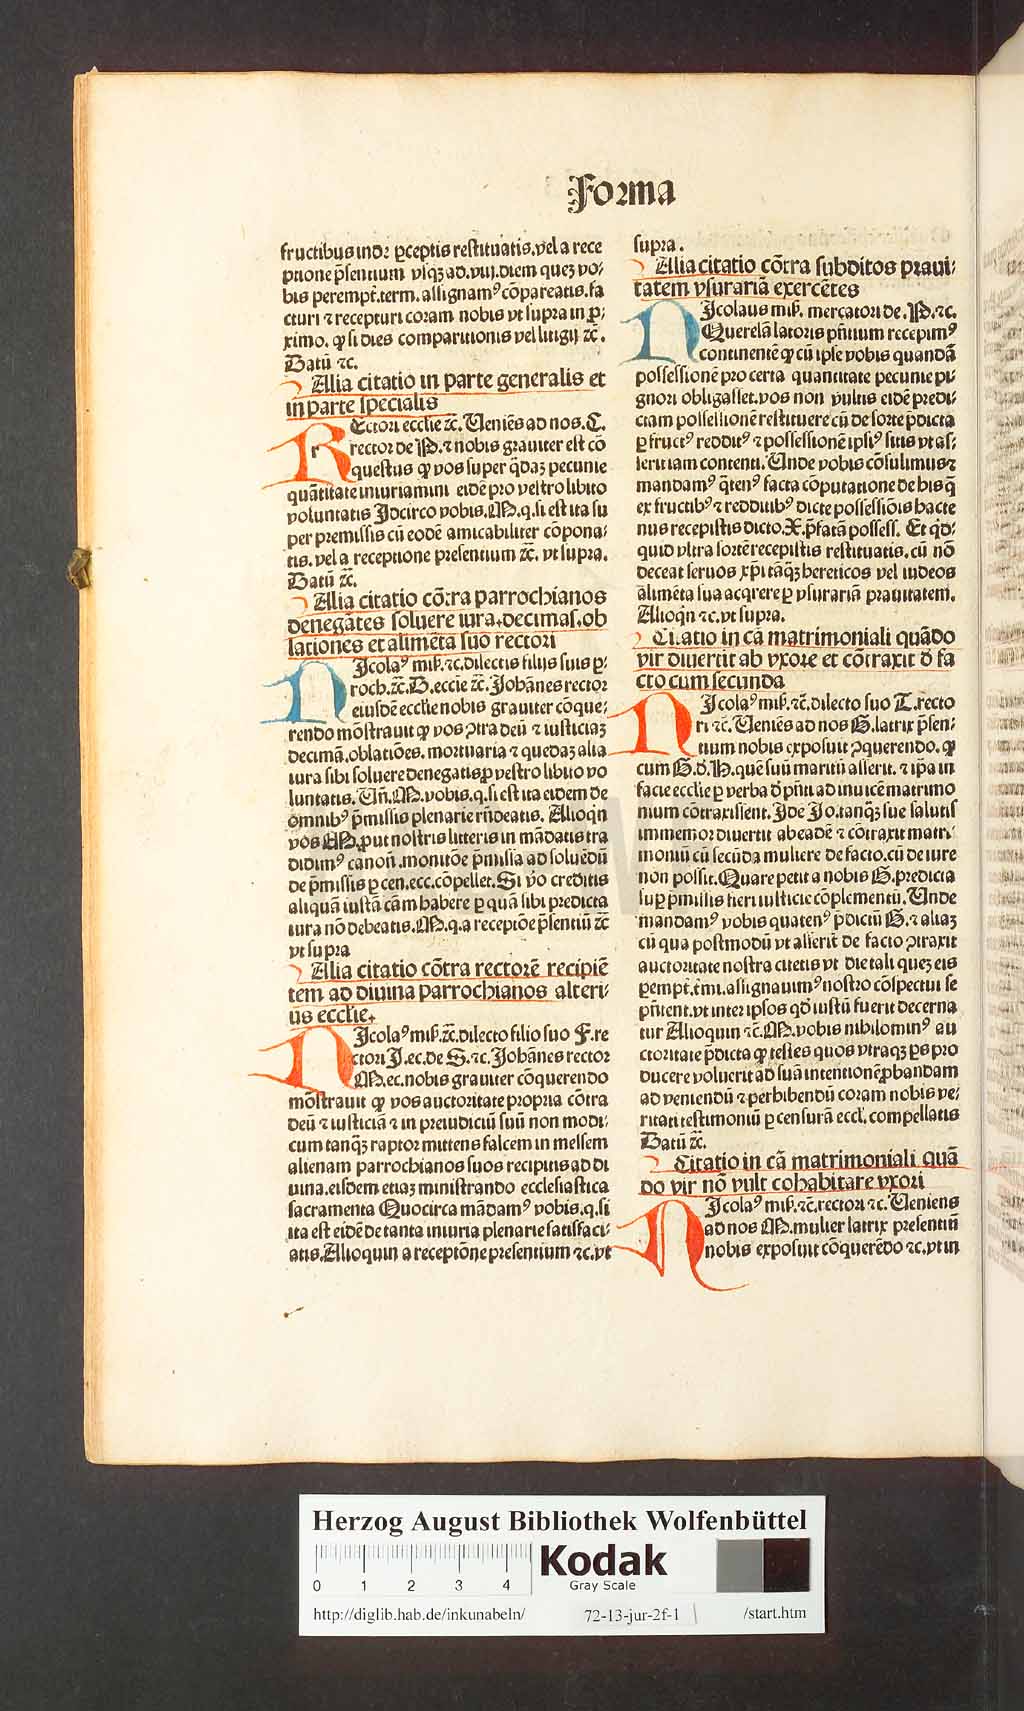 Forma
fructibus indꝛ ꝑceptis restituatis. vel a rece
ptione p̄sentium vſqꝫ ad. viij. diem queꝫ vo⸗
bis perempt̄. term. aſſignamꝰ cōpareatis. fa
cturi ⁊ recepturi coram nobis vt supra in ꝓ⸗
ximo. ꝙ si dies comparitionis vel litigij ⁊c̄.
Datū ⁊c.
Alia citatio in parte generalis et
in parte specialis
REctori ecclie ⁊c̄. Veniēs ad nos. C.
rector de P. ⁊ nobis grauiter est cō
questus ꝙ vos super q̄daꝫ pecunie
quātitate iniuriamini eidē pro vestro libito
voluntatis Idcirco vobis. M. q. si est ita su
per premissis cū eodē amicabiliter cōpona⸗
tis. vel a receptione presentium ⁊c̄. vt supra.
Datū ⁊c̄.
Alia citatio cōtra parrochianos
denegātes soluere iura. decimas. ob
lationes et alimēta suo rectori
NIcolaꝰ miſ. ⁊c. dilectis filijs suis ꝑ⸗
roch. ⁊c̄. D. eccie ⁊c̄. Johānes rector
eiusdē ecclie nobis grauiter cōque⸗
rendo mōstrauit ꝙ vos ↄtra deū ⁊ iusticiaꝫ
decimā. oblatiōes. mortuaria ⁊ quedaꝫ alia
iura sibi soluere denegatis ꝓ vestro libito vo
luntatis. Vn̄. M. vobis. q. si est ita eidem de
omnibꝰ p̄missis plenarie rn̄deatis. Alioqn̄
vos M. ꝓut nostris litteris in mādatis tra
didimꝰ canon̄. monitōe p̄missa ad soluēdū
de p̄missis ꝑ cen. ecc. cōpellet. Si v̄o creditis
aliquā iustā cām habere ꝑ quā sibi predicta
iura nō debeatis. M. q. a receptōe p̄sentiū ⁊c̄
vt supra
Alia citatio cōtra rectorē recipiē
tem ad diuina parrochianos alteri⸗
us ecclie.
NIcolaꝰ miſ. ⁊c̄. dilecto filio suo F. re
ctori J. ec. de S. ⁊c. Johānes rector
M. ec. nobis grauiter cōquerendo
mōstrauit ꝙ vos auctoritate propria cōtra
deū ⁊ iusticiā ⁊ in preiudiciū suū non modi⸗
cum tanqꝫ raptor mittens falcem in messem
alienam parrochianos suos recipitis ad di
uina. eisdem etiaꝫ ministrando ecclesiastica
sacramenta Quocirca mādamꝰ vobis. q. si
ita est eidē de tanta iniuria plenarie satisfaci⸗
atis. Alioquin a receptōne presentium ⁊c. vt
supra.
Alia citatio cōtra subditos praui⸗
tatem vsurariā exercētes
NIcolaus miſ. mercatori de. P. ⁊c.
Querelā latoris pn̄tium recepimꝰ
continentē ꝙ cū ipse vobis quandā
possessionē pro certa quantitate pecunie pi⸗
gnori obligasset. vos non vultis eidē predi⸗
ctam possessionē restituere cū de sorte p̄dicta
ꝑ fructꝰ redditꝰ ⁊ possessionē ipsiꝰ sitis vt as⸗
seritiam contenti. Unde vobis cōsulimus ⁊
mandamꝰ q̄tenꝰ facta cōputatione de his q̄
ex fructibꝰ ⁊ redditibꝰ dicte possessiōis hacte
nus recepistis dicto. X. p̄fatā possess. Et qd⸗
quid vltra sortē recepistis restituatis. cū nō
deceat seruos xp̄i tāqꝫ hereticos vel iudeos
alimēta sua acqrere ꝑ vsurariā prauitatem.
Alioqn̄ ⁊c. vt supra.
Citatio in cā matrimoniali quādo
vir diuertit ab vxore et cōtraxit d̄ fa
cto cum secunda
NIcolaꝰ miſ. ⁊c̄. dilecto suo T. recto
ri ⁊c̄. Veniēs ad nos G. latrix p̄sen⸗
tium nobis exposuit ↄquerendo. ꝙ
cum G. d. H. quē suū maritū asserit. ⁊ ip̄a in
facie ecclie ꝑ verba d̄ pn̄ti ad inuicē matrimo
nium cōtraxissent. Idē Jo. tanqꝫ sue salutis
immemor diuertit ab eadē ⁊ cōtraxit matri⸗
moniū cū secūda muliere de facto. cū de iure
non possit. Quare petit a nobis G. predicta
suꝑ p̄missis fieri iusticie cōplementū. Unde
mandamꝰ vobis quatenꝰ p̄dictū G. ⁊ aliaꝫ
cū qua postmodū vt asserit de facto ↄtraxit
auctoritate nostra citetis vt die tali queꝫ eis
ꝑempt. t̄mi. assignauimꝰ nostro cōspectui se
pn̄tent. vt inter ipsos qd̄ iustū fuerit decerna
tur Alioquin ⁊c̄. M. vobis nihilominꝰ au
ctoritate p̄dicta ꝙ testes quos vtraqꝫ ꝑs pro
ducere voluerit ad suā intentionē ꝓbandam
ad veniendū ⁊ perhibendū coram nobis ve⸗
ritati testimoniū ꝑ censurā eccl. compellatis
Datū ⁊c̄.
Citatio in cā matrimoniali quā
do vir nō vult cohabitare vxori
NIcolaꝰ miſ. ⁊c̄. rectori ⁊c. Veniens
ad nos M. mulier latrix presentiū
nobis exposuit cōquerēdo ⁊c. vt in
Herzog August Bibliothek Wolfenbüttel
0 1 2 3 4
Kodak
Gray Scale
http://diglib.hab.de/inkunabeln/ 72-13-jur-2f-1 /start.htm